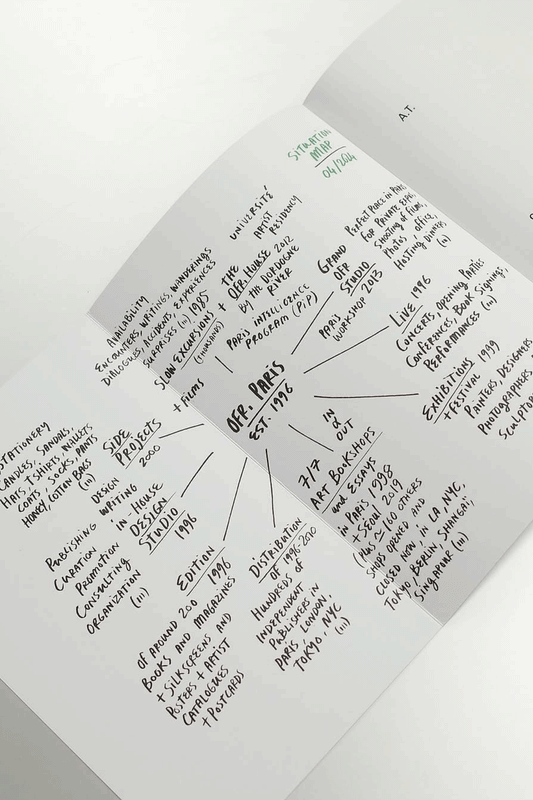 A.T.
SITUATION
MAP
04/2024
UNIVERSITÉ
ARTIST
RESIDENCY
PERFECT PLACE IN PARIS
FOR PRIVATE EXPO,
SHOOTING OF FILMS,
PHOTOS, OFFICE,
HOSTING DINNER,
(...)
GRAND
OFR
STUDIO
PARIS
WORKSHOP 2013
AVAILABILITY
ENCOUNTERS, WRITINGS, WANDERINGS
DIALOGUES, ACCIDENTS, EXPERIENCES
SURPRISES (...) 1985
SLOW EXCURSIONS
(THOUSANDS)
+ FILMS
+ THE
OFR. HOUSE 2012
BY THE DORDOGNE
RIVER
PARIS INTELLIGENCE
PROGRAM (P;P)
LIVE 1996
CONCERTS, OPENING PARTIES
CONFERENCES, BOOK SIGNINGS,
PERFORMANCES (...)
OFR. PARIS
EST. 1996
EXHIBITIONS 1999
+ FESTIVAL
PAINTERS, DESIGNERS
PHOTOGRAPHERS,
SCULPTO
IN
&
OUT
7/7
ART BOOKSHOPS
and ESSAYS
in PARIS 1998
+ SEOUL 2019
(Plus ≃ 160 OTHERS
SHOPS OPENED AND
CLOSED NOW; in LA, NYC,
TOKYO, BERLIN, SHANGAI,
SINGAPORE (...)
STATIONERY
CANDLES, SANDALS,
HATS, TSHIRTS, WALLETS
COATS, SOCKS, PANTS
HONEY, COTTON BAGS
(...)
SIDE
PROJECTS
2000
DESIGN
WRITING
PUBLISHING
CURATION
PROMOTION
CONSULTING
ORGANIZATION
(...)
in HOUSE
DESIGN
STUDIO
1996
EDITION
1996
OF AROUND 200
BOOKS AND MAGAZINES
+ SILKSCREENS AND
POSTERS + ARTIST
CATALOGUES
+ POSTCARDS
DISTRIBUTION
OF 1996-2010
HUNDREDS OF
INDEPENDENT
PUBLISHERS IN
PARIS, LONDON,
TOKYO, NYC
(...)